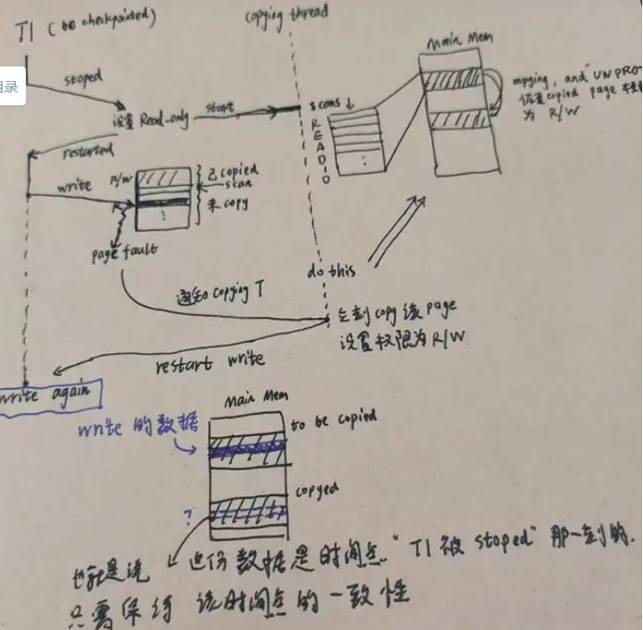 T1 (be checkpointed)
copying thread
Main Mem
目录
stoped
设置 Read_only
start
scans
READIO
copying, and "UNPRO
设置 copied page 权限
为 R/W
restarted
write
R/W
已copied
scan
未copy
R
page fault
通知 copying T
do this
立刻 copy 该 page
设置权限为 R/W
restart write
write again
write 的数据
Main Mem
to be copied
copyed
?
也就是说 这份数据是时间点 "T1 被 stoped" 那一刻的.
只需保持 该时间点的一致性